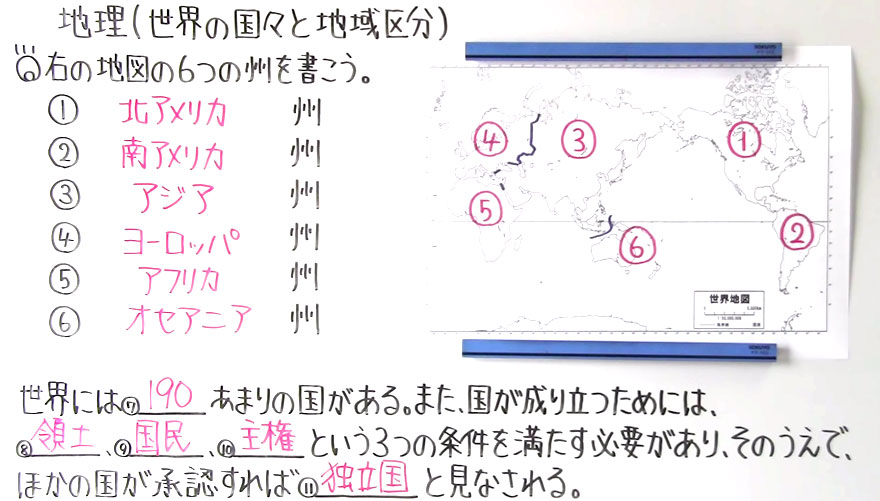 地理(世界の国々と地域区分)
Q右の地図の6つの州を書こう。
① 北アメリカ 州
② 南アメリカ 州
③ アジア 州
④ ヨーロッパ 州
⑤ アフリカ 州
⑥ オセアニア 州
④ ③ ①
⑤
⑥ ②
世界地図
世界には⑦190あまりの国がある。また、国が成り立つためには、
⑧領土、⑨国民、⑩主権という3つの条件を満たす必要があり、そのうえで、
ほかの国が承認すれば⑪独立国と見なされる。